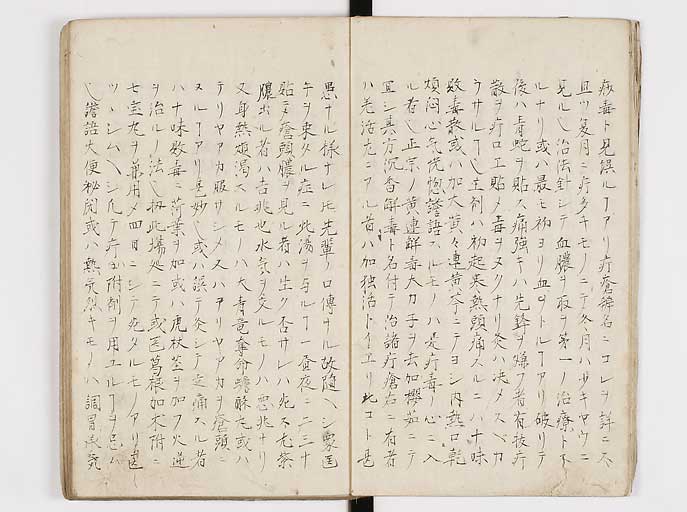 病毒ト見誤ルヿアリ疔瘡稗名ニコレヲ詳ニス
且ツ夏月ニ疔多キモノニテ冬月ハ少キヤウニ
見ル乄治法針シテ血膿ヲ取ヲ第一ノ治療トス
ルナリ或ハ最モ初ヨリ血ヲトルヿアリ破リテ
後ハ青蛇ヲ貼ス痛強キハ先鋒ヲ爆フ者有抜疔
散ヲ疔口エ貼メ毒ヲヌクナリ灸ハ决メスベカ
ラサルヿ乄主剤ハ初起寒熱頭痛スルニハ十味
敗毒散或ハ加大黄々連黄芩ニテヨシ内熱口乾
煩悶心气恍惚譫語スルモノハ是疔毒ノ心ニ入
ル者乄正宗ノ黄連解毒大力子ヲ去加樱茹ニテ
宜シ其方沉香解毒ト名付テ治諸疔瘡右ニ有者
ハ老活尤ニアル者ハ加独活トイエリ此コト甚
愚ナル様ナレ𪜈先輩ノ口傳ナル故随ヘシ衆医
手ヲ束タル症ニ此湯ヲ与ルヿ一昼夜ニ二三十
貼ニテ瘡頭膿ヲ見ル者ハ生ク否サレハ死ス尤紫
膿出ル者ハ吉兆也水気ヲ交ルモノハ悪兆ナリ
又身熱煩渇スルモノハ大青竜奪命蟾酥丸或ハ
テリヤアカ服サシメ又ハテリヤアカヲ瘡頭ニ
ヌルヿアリ是妙乄或ハ誤テ灸シテ走痛スル者
ハ十味敗毒ニ荷葉ヲ加或ハ虎杖莖ヲ加フ火逆
ヲ治ルノ法乄扨此場処ニテ或医葛根加朮附ニ
七宝丸ヲ兼用メ四日ニシテ死タルモノアリ
ツヽシムヘシ凡テ疔附剤ヲ用ユルヿヲ忌ム
乄譫語大便秘閉或ハ熱气烈キモノハ調胃承氣